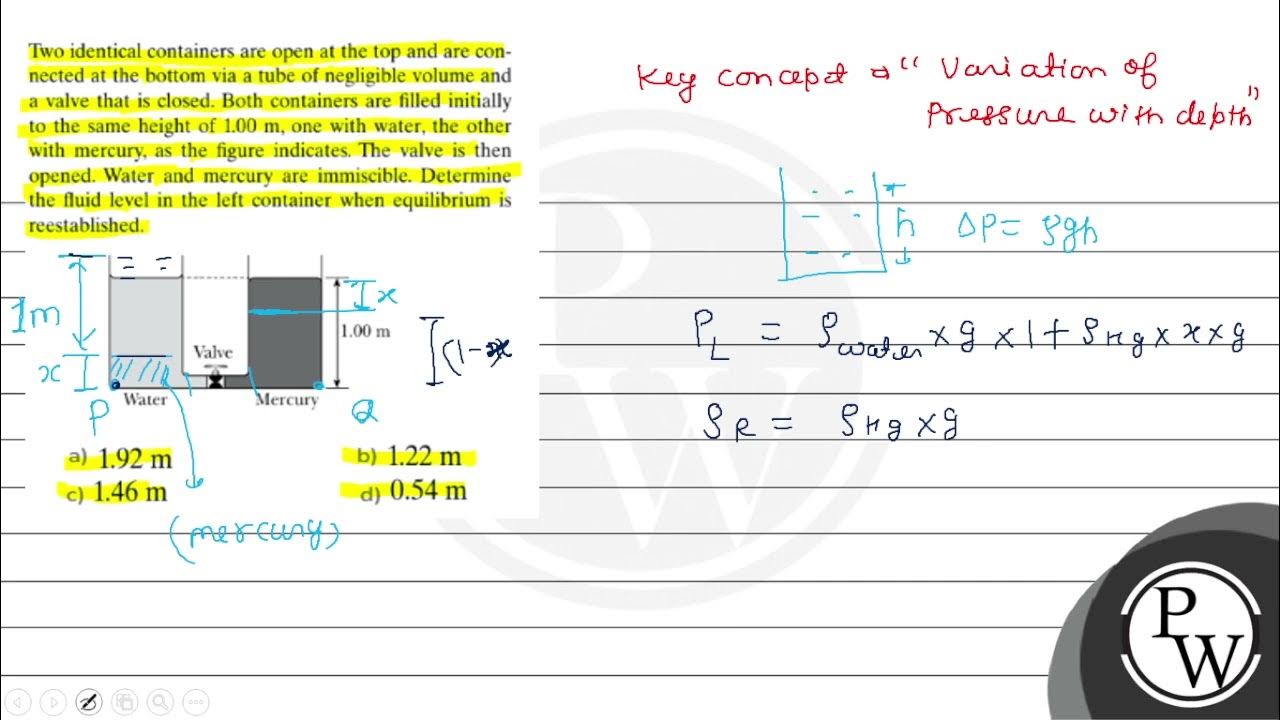 Two identical containers are open at the top and are con-
nected at the bottom via a tube of negligible volume and
a valve that is closed. Both containers are filled initially
to the same height of 1.00 m, one with water, the other
with mercury, as the figure indicates. The valve is then
opened. Water and mercury are immiscible. Determine
the fluid level in the left container when equilibrium is
reestablished.
1m
x
x
1.00 m
(1-x
Valve
Water
Mercury
P
Q
a) 1.92 m
b) 1.22 m
c) 1.46 m
d) 0.54 m
(mercury)
Key concept ⇒ "Variation of
Pressure with depth"
h
ΔP = ρgh
P_L = ρ_water × g × 1 + ρ_Hg × x × g
ρ_R = ρ_Hg × g
PW
P
W